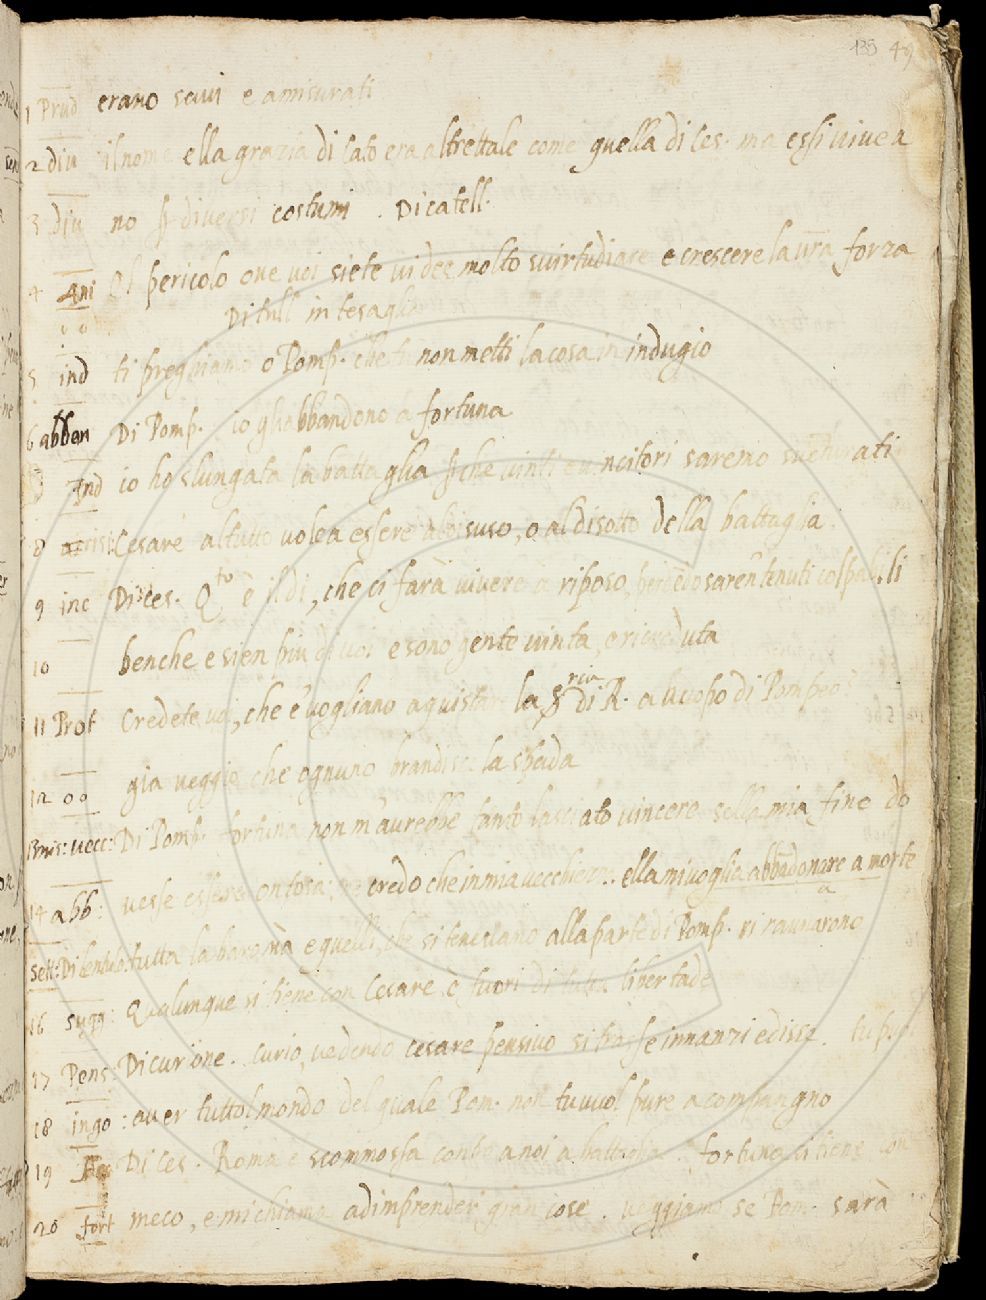 135 49
1 Prud erano savi e amisurati
2 diu il nome ella grazia di Cato era altrettale come quella di Ces. ma essi vivea
3 diu no diversi costumi . Di catell.
4 Ani Ol pericolo ove voi siete vi dee molto svirtudiare e crescere la vra forza
Di tull in tesaglia
5 ind ti preghiamo o Pomp. che tu non metti la cosa in indugio
6 abban Di Pomp. io gli abbandono a fortuna
Ind io ho slungata la battaglia che vinti e vincitori saremo sventurati
8 Cesare al tutto volea essere al di suso, o al disotto della battaglia.
9 inc Di Ces. Qto è il di, che ci farà vivere a riposo, perdedo saren tenuti colpabili
10 benche e sien piu di voi e sono gente vinta, e ricreduta
11 Prof Credete voi, che e vogliano aquistar la Sria di R. a huopo di Pompeo?
12 oo gia veggio che ognuno brandisce la spada
13 mis: vecc: Di Pomp. fortuna non m'aurebbe tanto lasciato vincere se la mia fine do
14 abb: vesse essere ontosa: credo che in mia vecchiezza ella mi voglia abbadonare a morte
Sett: Di Lentulo: tutta la baronia e quelli, che si teneano alla parte di Pomp. vi raunarono
16 sugg: Qualunque si tiene con Cesare è fuori di tutta libertade
17 Pens: Di Curione. Curio, vedendo Cesare pensivo si trasse innanzi e disse. tu puoi
18 ingo: aver tuttol mondo del quale Pom. non tu vuol pure a compangno
19 Di Ces. Roma è scommossa contra noi a battaglia. fortuna si tiene con
20 fort meco, e mi chiama ad imprender gran cose. veggiamo se Pom. sarà